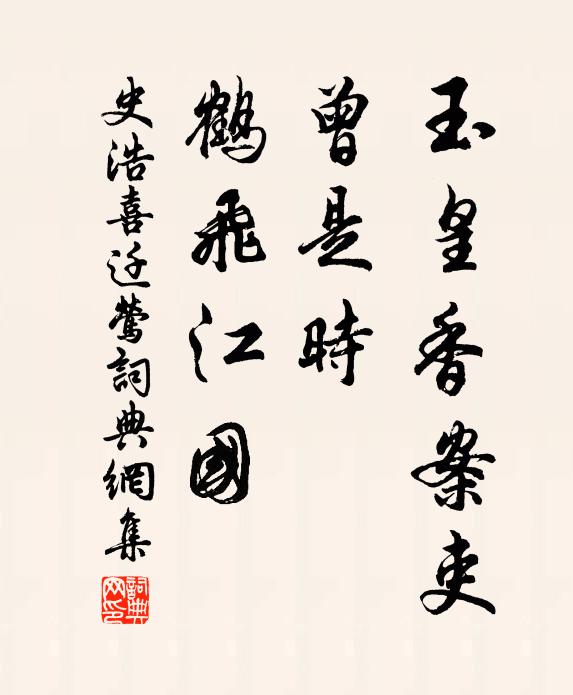 玉皇香案吏
曾是時
鶴飛江國
史浩喜迁鶯詞典網集
詞典網印